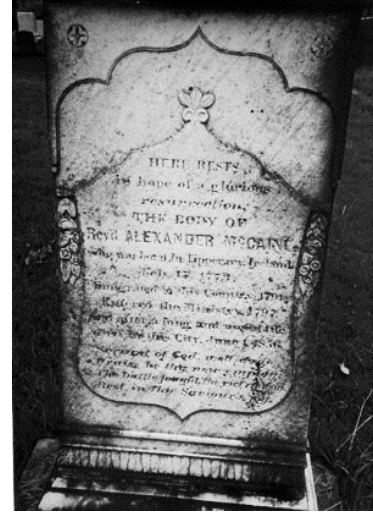 HERE RESTS
in hope of a glorious
resurrection,
THE BODY OF
Revd ALEXANDER McCAINE,
who was born in Tipperary, Ireland,
1773.
Emigrated to this Country, 1791,
Entered the Ministry, 1797,
and after a long and useful life
died in this City, June 1, 1856.
Servant of God, well done,
Praise be thy new employ
The battle fought, the
Rest in thy Saviour's